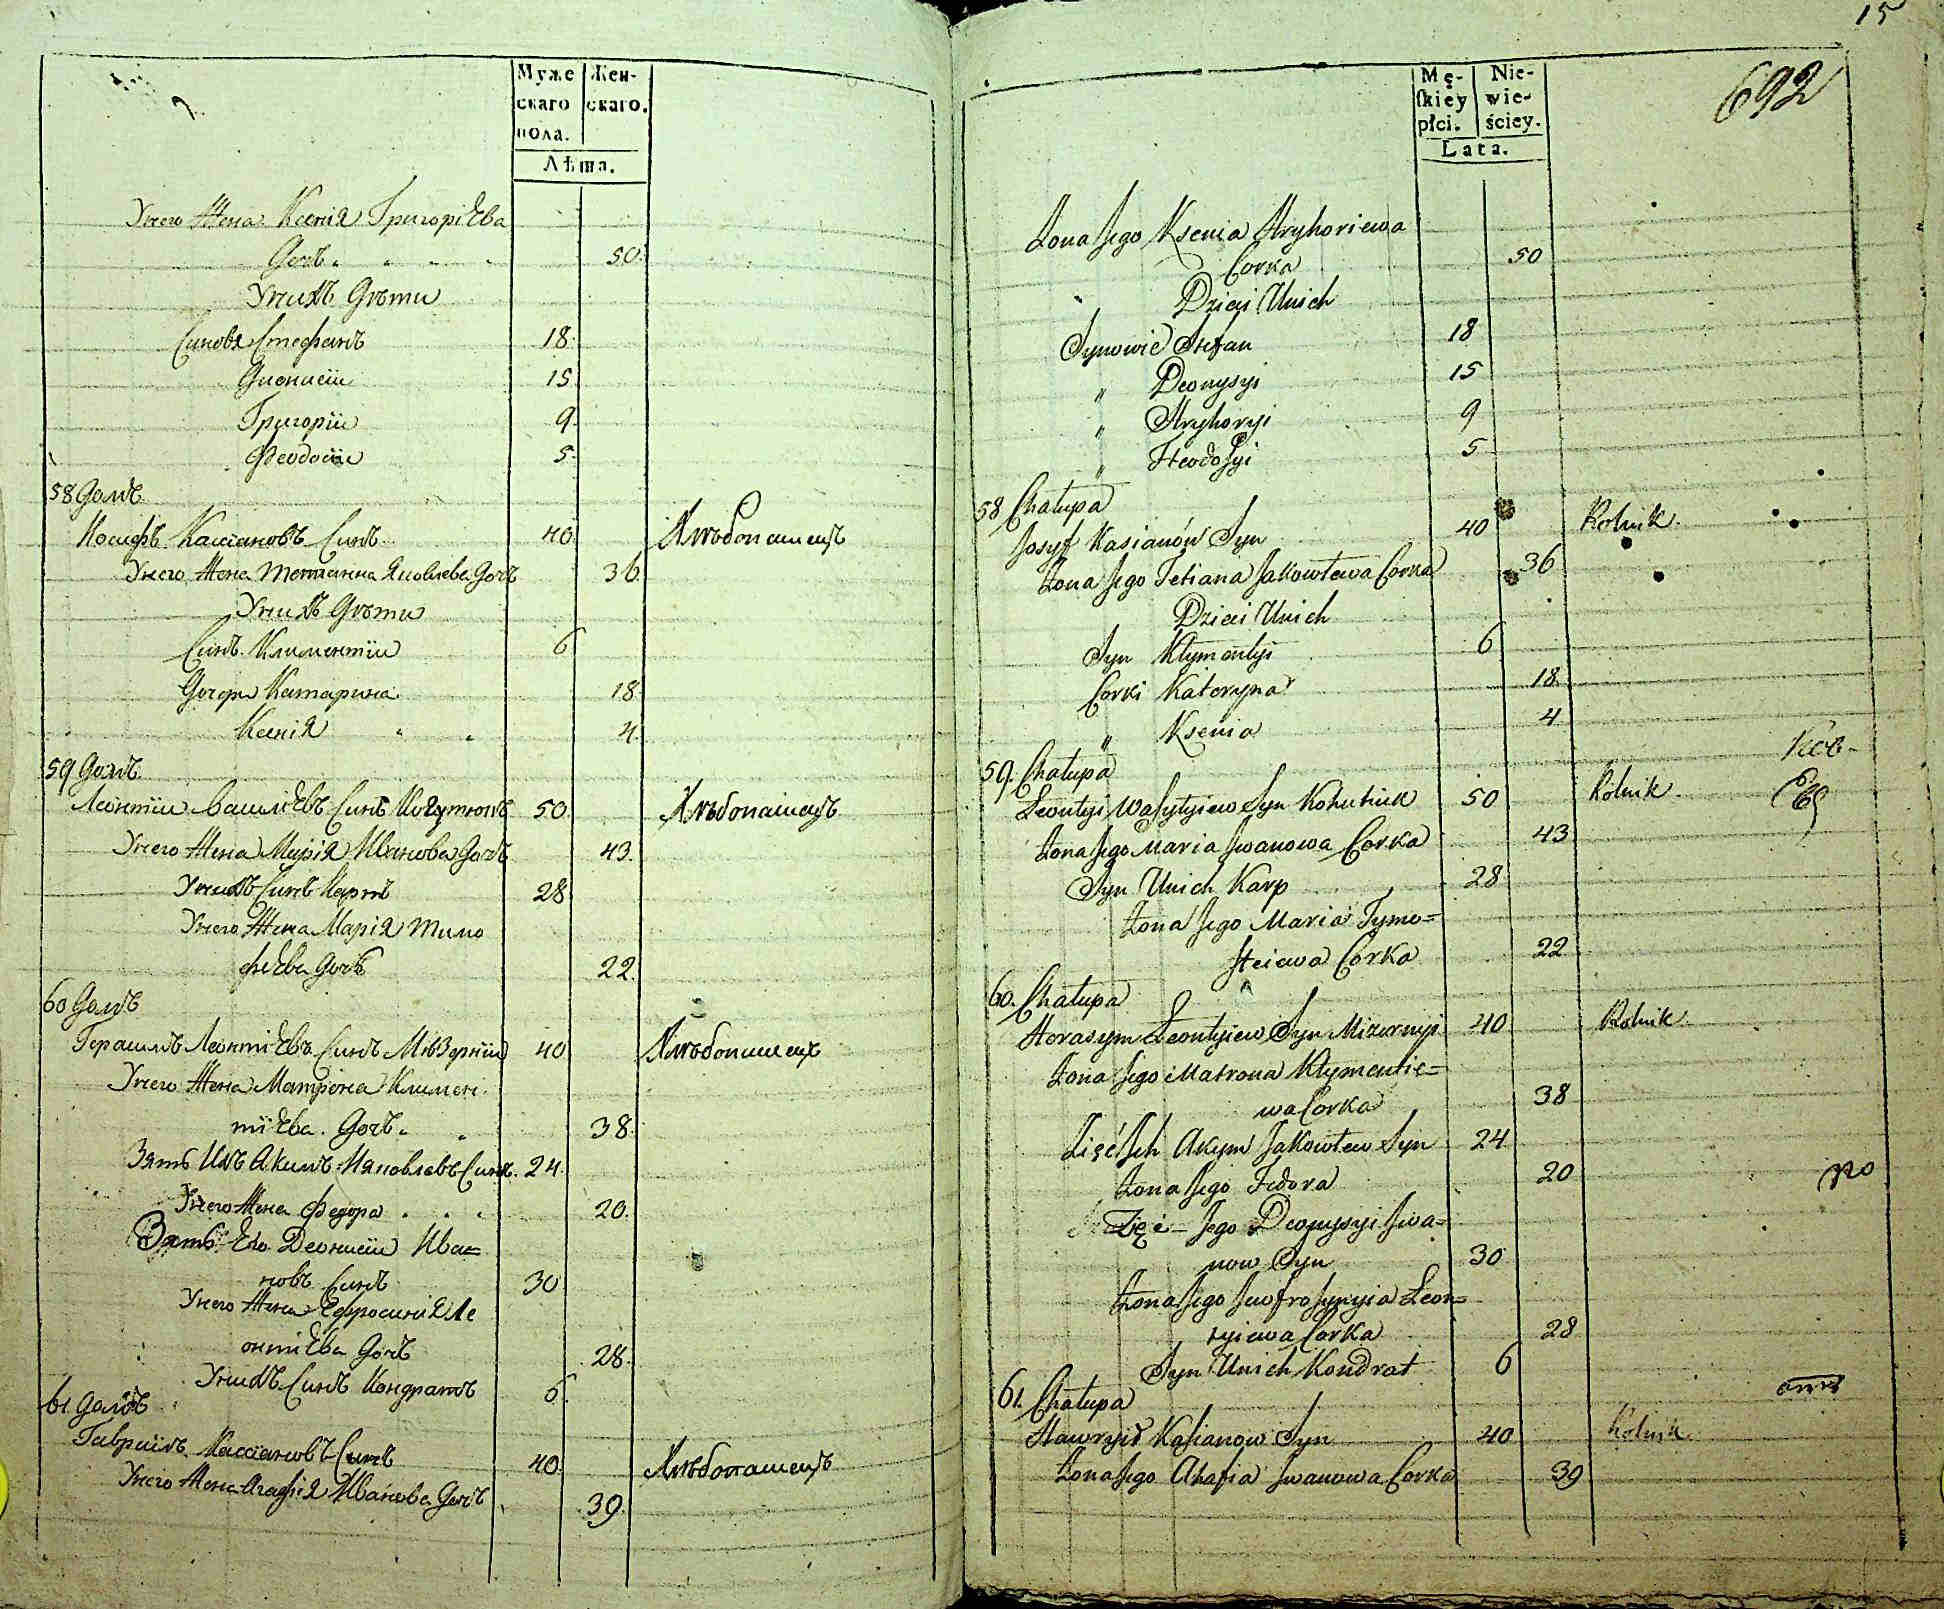 Муже
скаго
пола.
Жен-
скаго.
Лѣта.
Унего Жена Ксенія Григоріева
Дочь 50.
Унихъ Дѣти
Синовя Стефанъ 18.
Дионисій 15
Григорій 9.
Феодосій 5.
58 Домъ
Иосифъ Кассіановъ Синъ 40. Хлѣбопашецъ
Унего Жена Тетианна Яковлева Дочь 36.
Унихъ Дѣти
Синъ Климентій 6
Дочери Катарина 18.
Ксенія 4.
59 Домъ
Леонтій Василіевъ Синъ Когутюкъ 50 Хлѣбопашецъ
Унего Жена Марія Иванова Дочь 43.
Унихъ Синъ Карпъ 28
Унего Жена Марія Тимо
фиева Дочь 22.
60 Домъ
Герасимъ Леонтіевъ Синъ Мѣзерній 40 Хлѣбопашецъ
Унего Жена Матрона Климен
тіева Дочь 38.
Зять Ихъ Акимъ Ияковлевъ Синъ 24.
Унего Жена Федора 20.
Зять Его Деонисій Ива=
новъ Синъ 30
Унего Жена Ефросинія Ле
онтіева Дочь 28.
Унихъ Синъ Кондратъ 6
61 Домъ
Гавриилъ Кассіановъ Синъ 40. Хлѣбопашецъ
Унего Жена Агафія Иванова Дочь 39.
15
692
Mę-
skiey
płci.
Nie-
wie-
ściey.
Lata.
Zona Jego Ksenia Hryhoriewa
Corka 50
Dzieci Unich
Synowie Stefan 18
" Deonysyi 15
" Hryhoryi 9
" Fteodosyi 5
58 Chałupa
Josyf Kasianów Syn 40 Rolnik.
Zona Jego Tetiana Jakowlewa Corka 36
Dzieci Unich
Syn Kłymentyi 6
Corki Kateryna 18.
" Ksenia 4
59. Chałupa
Leontyi Wasylyiew Syn Kohutiuk 50 Rolnik.
Zona Jego Maria Iwanowa Corka 43
Syn Unich Karp 28
Zona Jego Maria Tymo=
fteiewa Corka 22
60. Chałupa
Horasym Leontyiew Syn Mizernyi 40 Rolnik.
Zona Jego Matrona Klymentie=
wa Corka 38
Zięć Ich Akym Jakowlew Syn 24
Zona Jego Fedora 20
Zięć Jego Deonysyi Iwa=
now Syn 30
Zona Jego Jewfrosynyia Leon=
tyiewa Corka 28
Syn Unich Kondrat 6
61. Chałupa
Hawryił Kasianow Syn 40 Rolnik
Zona Jego Ahafia Iwanowa Corka 39